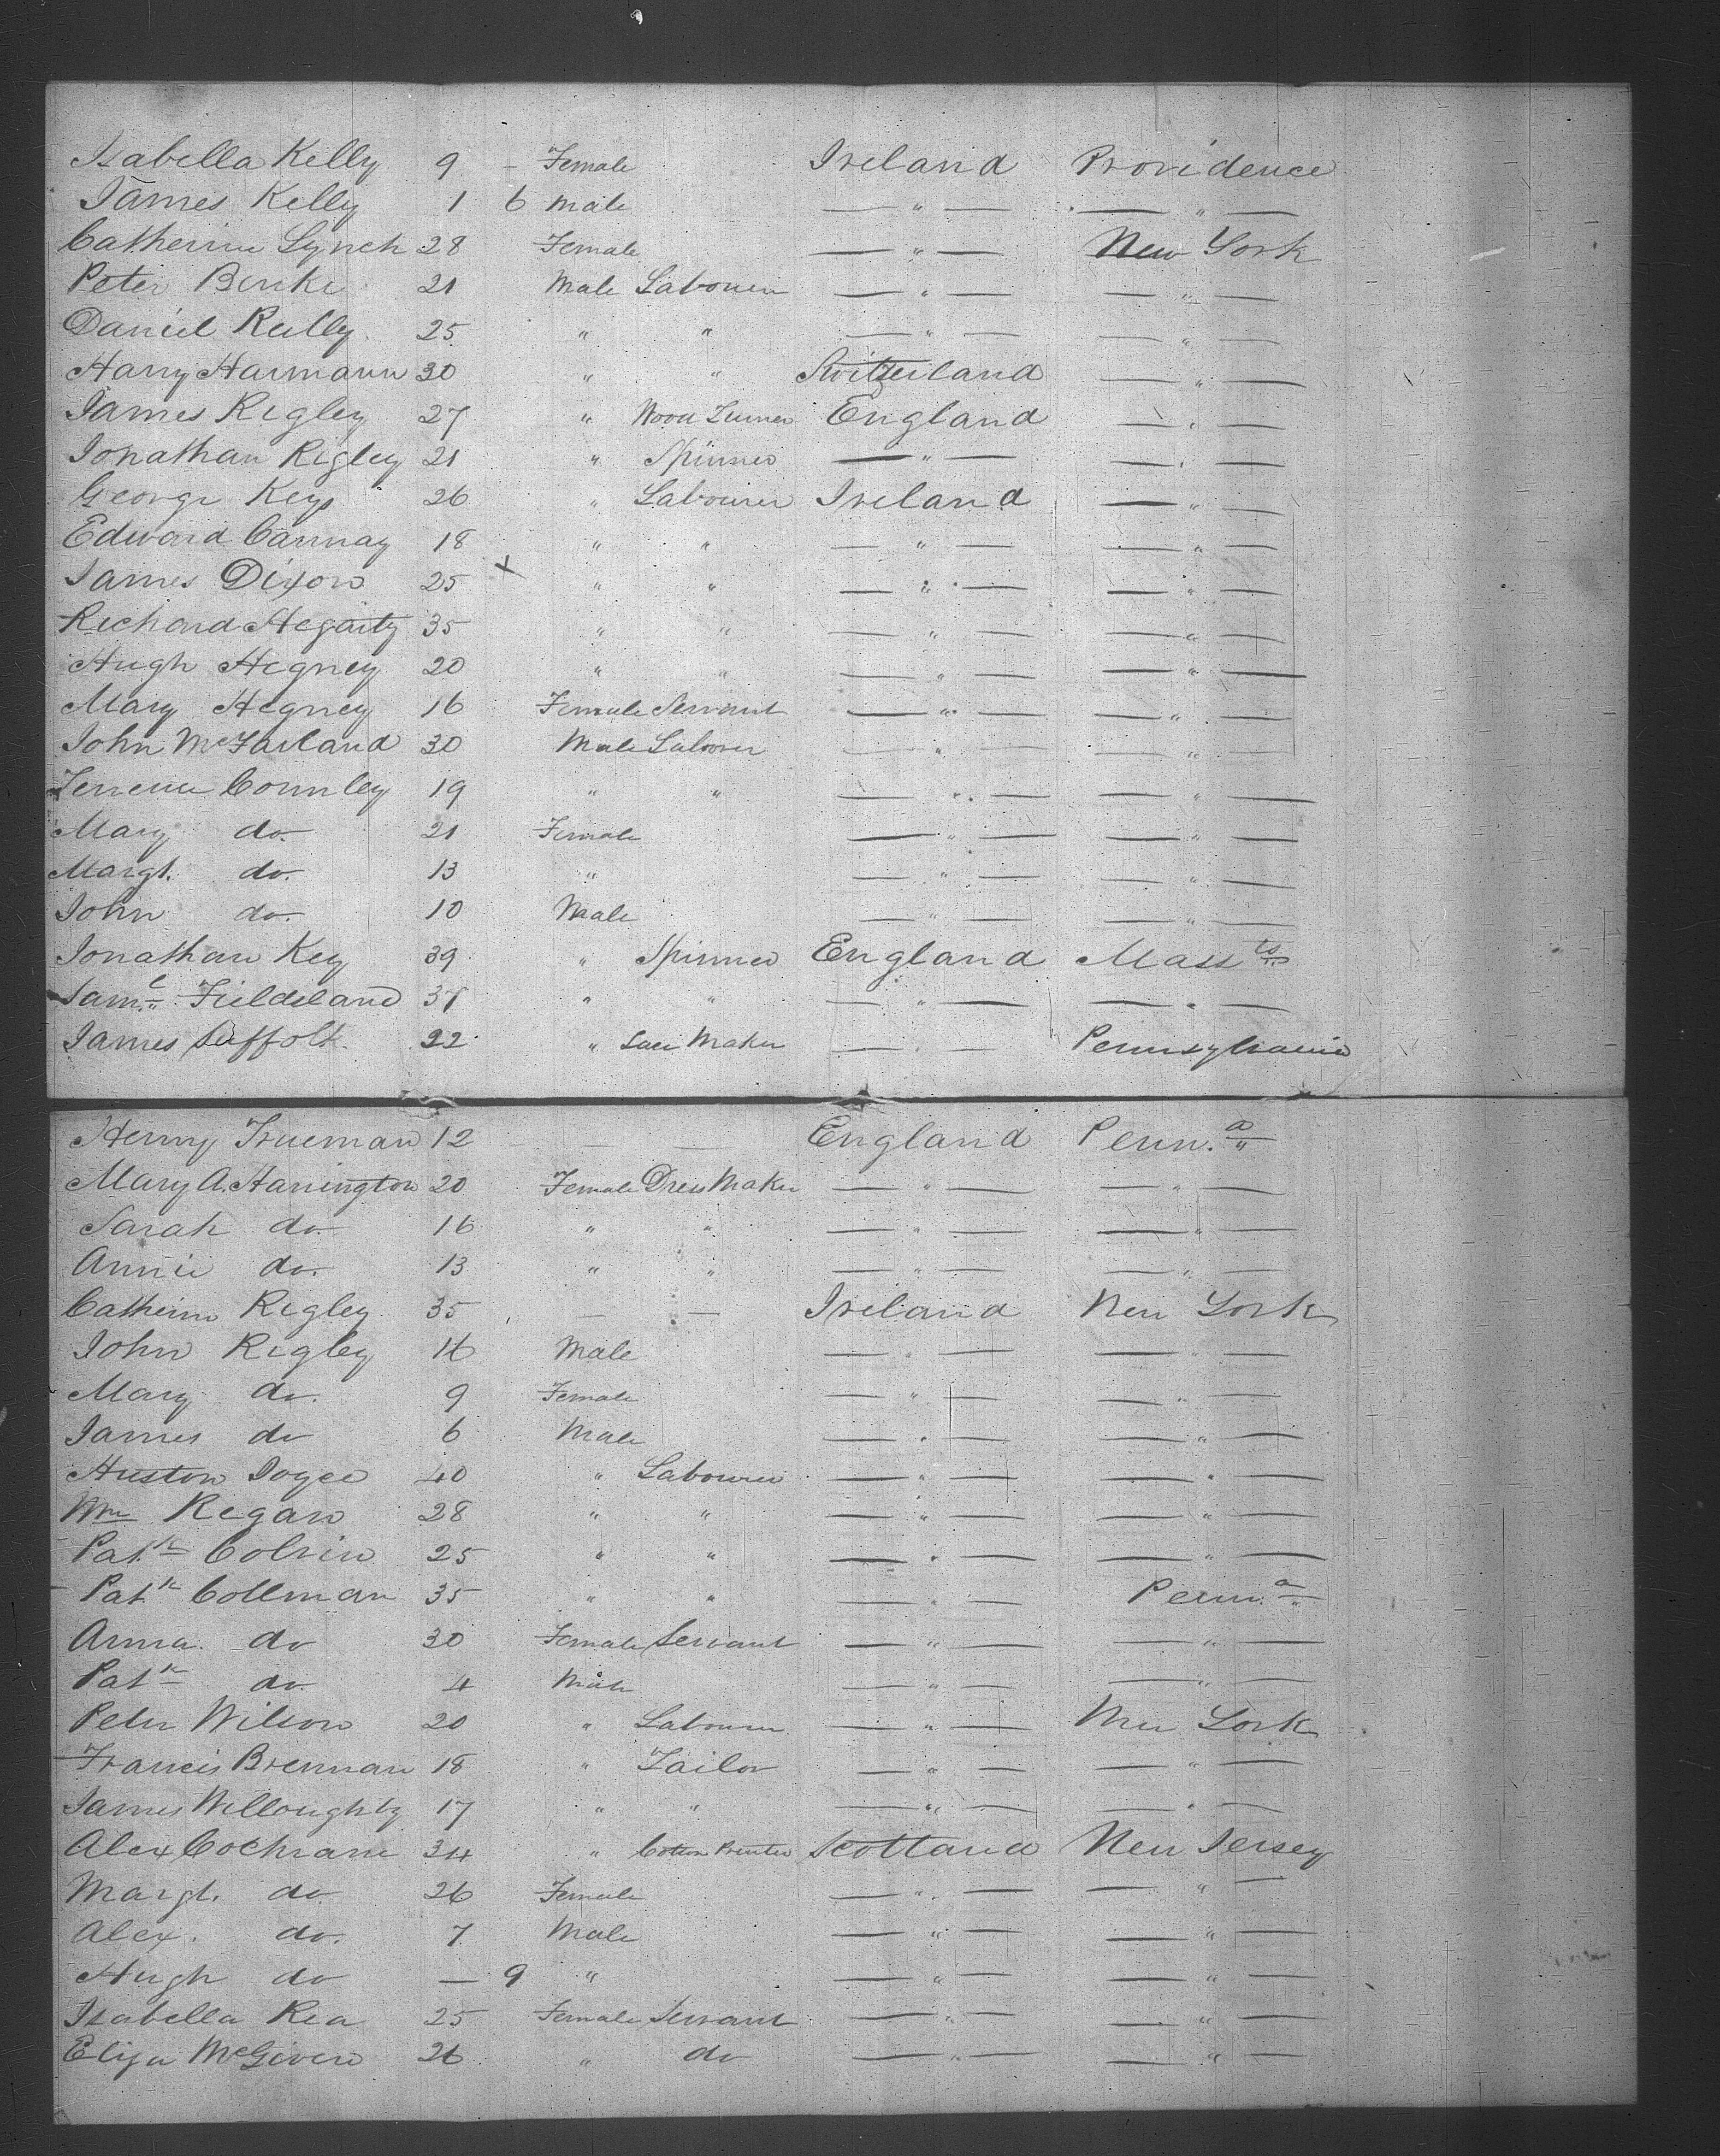 Isabella Kelly 9 – Female Ireland Providence
James Kelly 1 6 Male — " — — " —
Catherine Lynch 28 Female — " — New York
Peter Burke 21 Male Labourer — " — — " —
Daniel Reilly 25 " " — " — — " —
Harry Harmann 30 " " Switzerland — " —
James Rigley 27 " Wood Turner England — " —
Jonathan Rigley 21 " Spinner — " — — " —
George Keys 26 " Labourer Ireland — " —
Edward Cannay 18 " " — " — — " —
James Dixon 25 x " " — " — — " —
Richard Hegarty 35 " " — " — — " —
Hugh Hegney 20 " " — " — — " —
Mary Hegney 16 Female Servant — " — — " —
John McFarland 30 Male Labourer — " — — " —
Terence Connley 19 " " — " — — " —
Mary do. 21 Female — " — — " —
Margt. do. 13 " — " — — " —
John do. 10 Male — " — — " —
Jonathan Key 39 " Spinner England Mass ts
Saml. Fieldeland 37 " " — " — — " —
James Suffolk 22 " Lace Maker — " — Pennsylvania
Henry Trueman 12 — — England Penn.a
Mary A. Harrington 20 Female Dress Maker — " — — " —
Sarah do. 16 " " — " — — " —
Annie do. 13 " " — " — — " —
Catherine Rigley 35 — — Ireland New York
John Rigley Male — " — — " —
Mary do. 9 Female — " — — " —
James do 6 Male — " — — " —
Huston Joyce 40 " Labourer — " — — " —
Wm Regan 28 " " — " — — " —
Patk Colvin 25 " " — " — — " —
Patk Collman 35 " " — " — Penn.a
Anna. do 30 Female Servant — " — — " —
Patk do. 4 Male — " — — " —
Peter Wilson 20 " Labourer — " — New York
Francis Brennan 18 " Tailor — " — — " —
James Willoughby 17 " " — " — — " —
Alex Cochrane 34 " Cotton Printer Scotland New Jersey
Margt. do 26 Female — " — — " —
Alex. do. 7 Male — " — — " —
Hugh do — 9 " — " — — " —
Isabella Rea 25 Female Servant — " — — " —
Eliza McGivern 26 " do — " — — " —